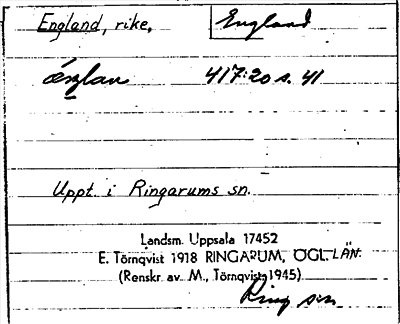 England, rike, England
417:20 s. 41
Uppt. i Ringarums sn.
Landsm. Uppsala 17452
E. Törnqvist 1918 RINGARUM, ÖGL. LÄN.
(Renskr. av M., Törnqvist 1945)
Ring sn